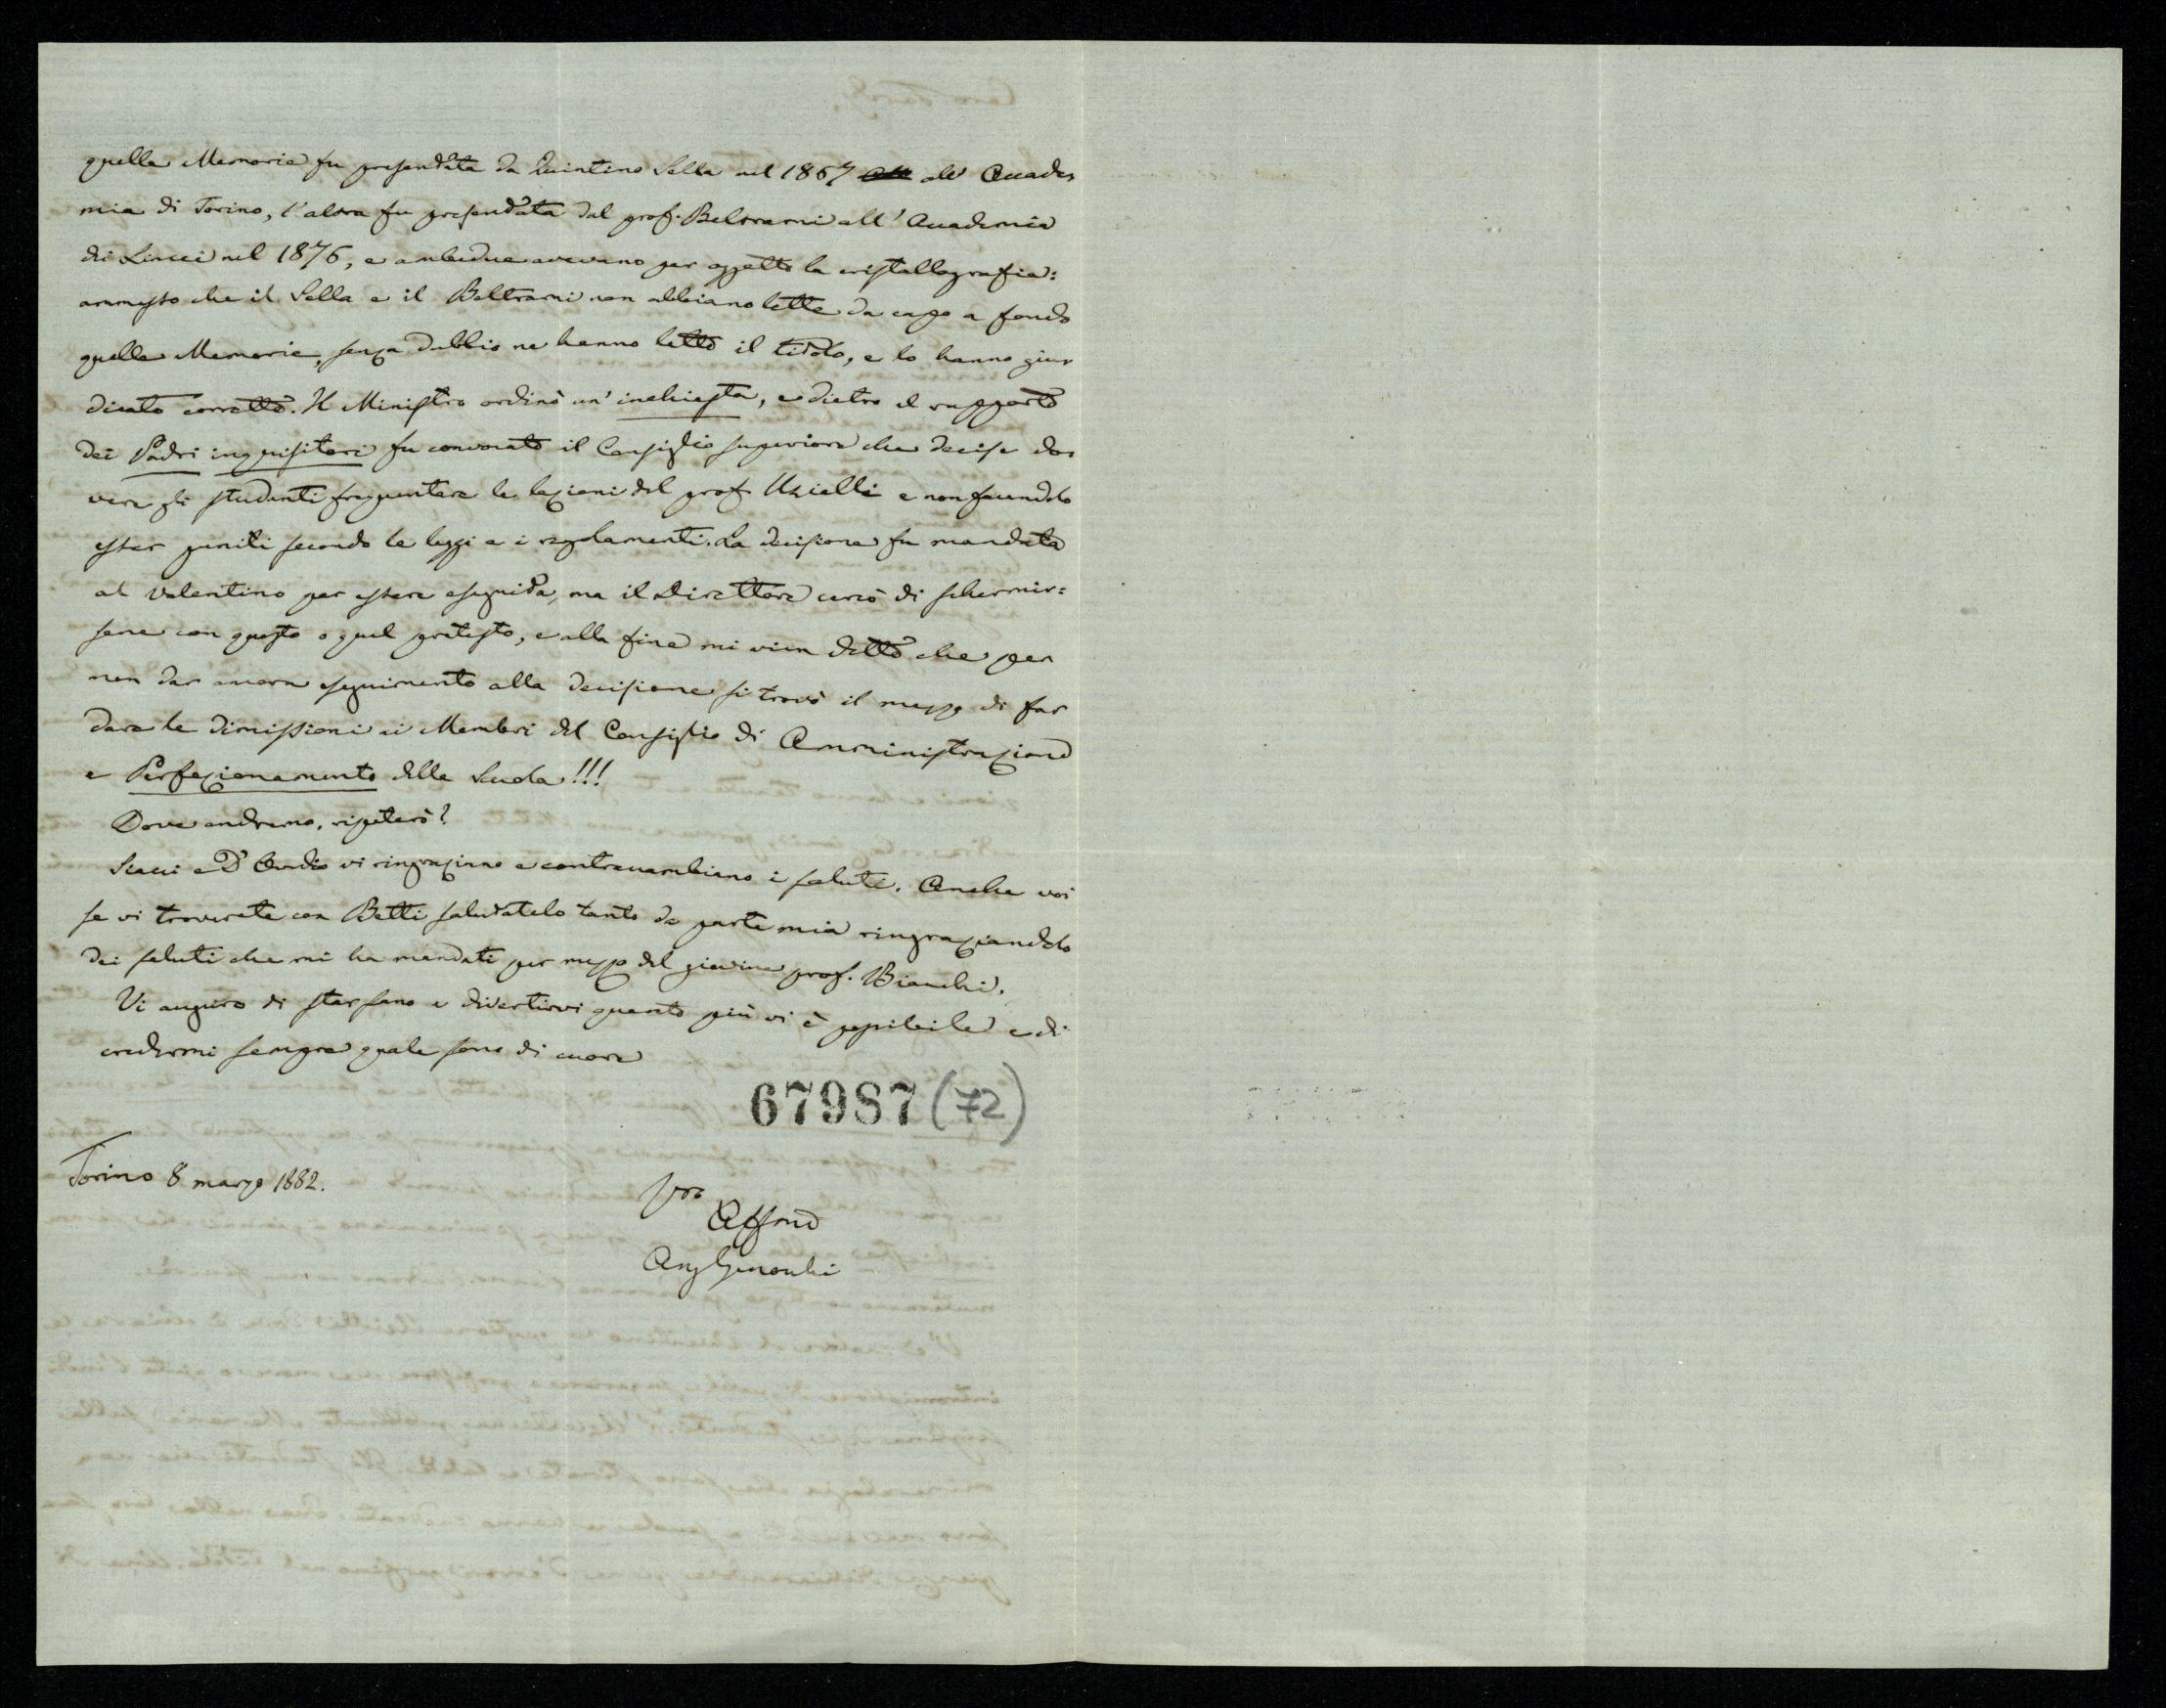 quelle Memorie fu presentata da Quintino Sella nel 1867 all' Accade-
mia di Torino, l'altra fu presentata dal prof. Beltrami all' Accademia
dei Lincei nel 1876, e ambedue avevano per oggetto la cristallografia:
ammesso che il Sella e il Beltrami non abbiano lette da capo a fondo
quelle Memorie, senza dubbio ne hanno letto il titolo, e lo hanno giu-
dicato corretto. Il Ministro ordinò un' inchiesta, e dietro il rapporto
dei Padri inquisitori fu convocato il Consiglio superiore che decise do-
vere gli studenti frequentare le lezioni del prof. Uzielli e non facendolo
esser puniti secondo le leggi e i regolamenti. La decisione fu mandata
al Valentino per essere eseguita, ma il Direttore cercò di schermir=
sene con questo o quel pretesto, e alla fine mi vien detto che per
non dar ancora eseguimento alla decisione si trovò il mezzo di far
dare le dimissioni ai Membri del Consiglio di Amministrazione
e Perfezionamento della Scuola!!!
Dove andremo, ripeterò?
Siacci e D'Ovidio vi ringraziano e contraccambiano i saluti. Anche voi
se vi troverete con Betti salutatelo tanto da parte mia ringraziandolo
dei saluti che mi ha mandati per mezzo del giovine prof. Bianchi.
Vi auguro di star sano e divertirvi quanto più vi è possibile e di
credermi sempre quale sono di cuore
67987 (72)
Torino 8 marzo 1882.
Vro
Affmo
Ang Genocchi